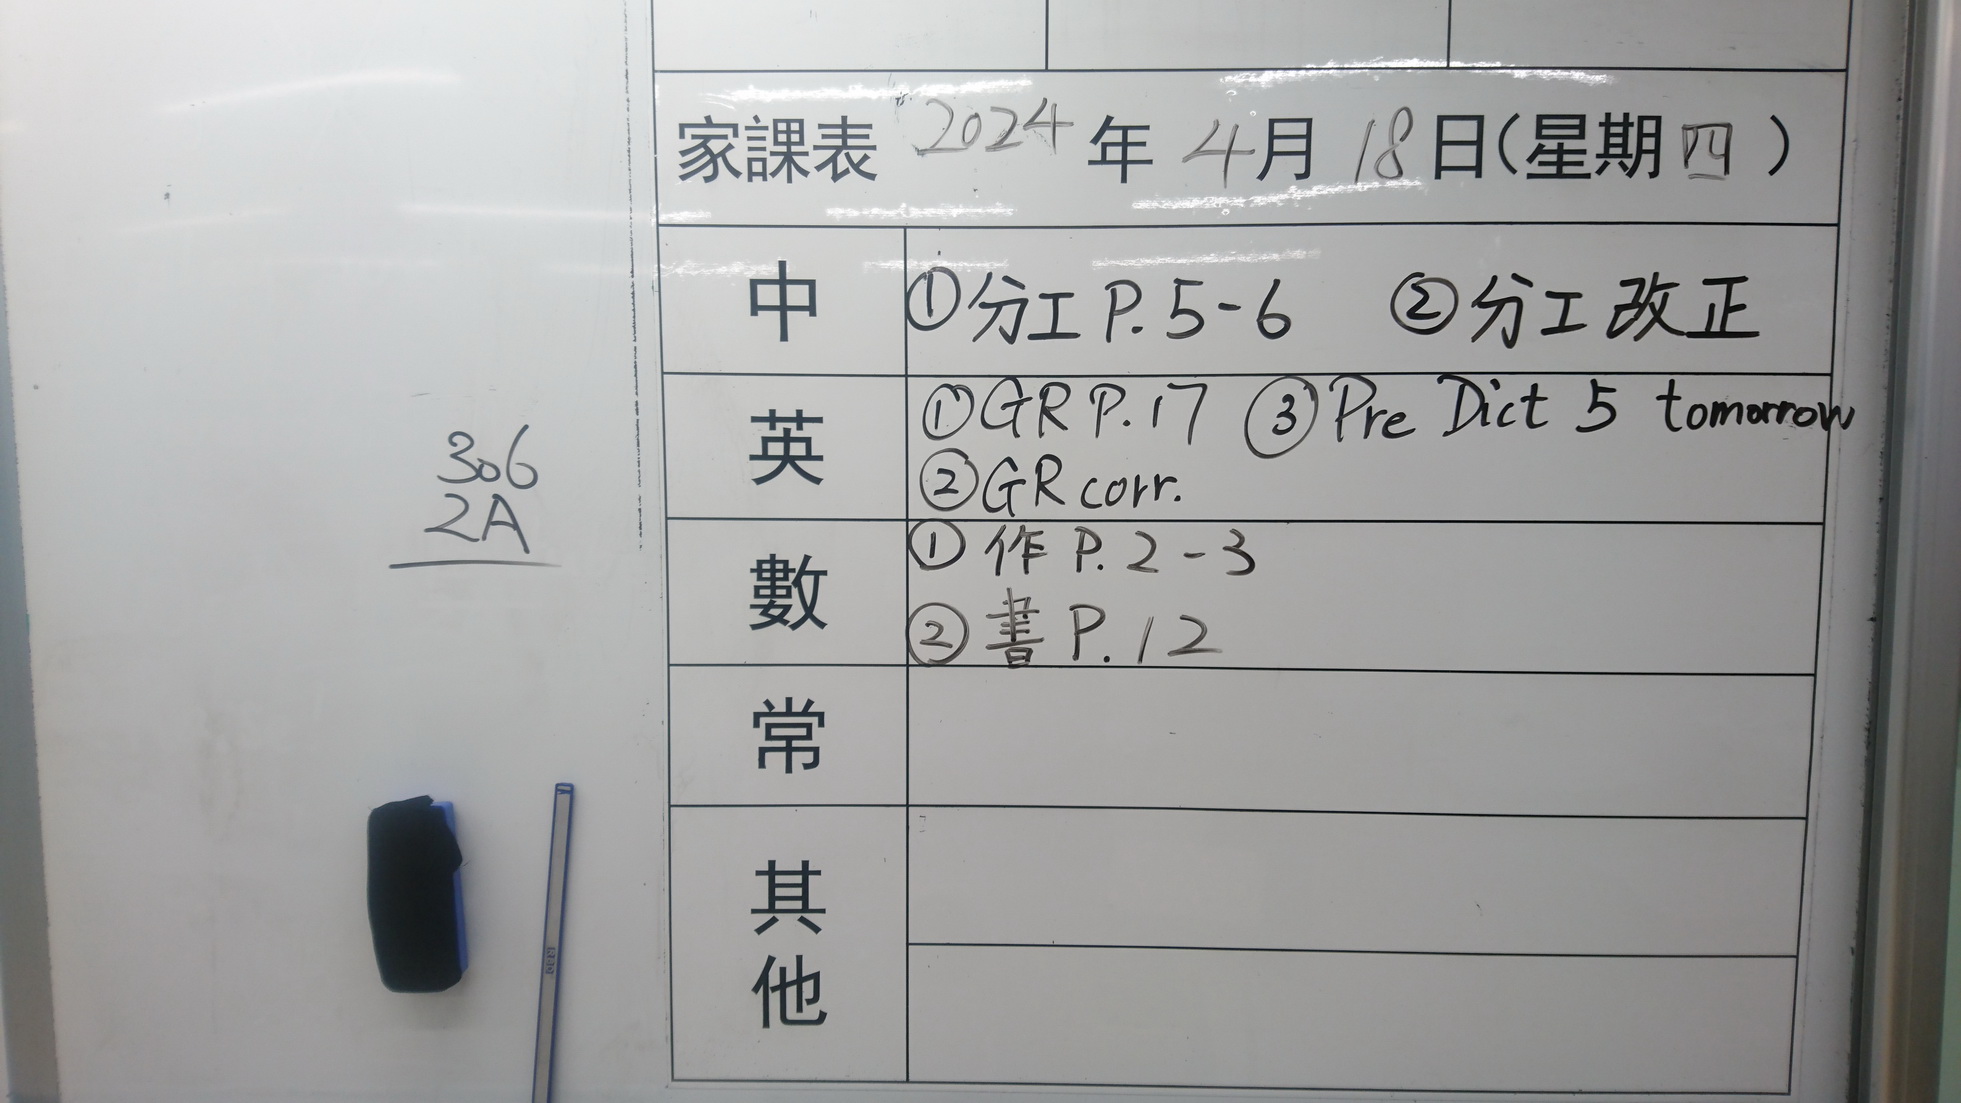 家課表 2024 年 4 月 18 日(星期四)
中 ①分工 P.5-6 ②分工改正
英 ①GR P.17 ③Pre Dict 5 tomorrow
②GR corr.
數 ①作 P.2-3
②書 P.12
常
其他
306
2A